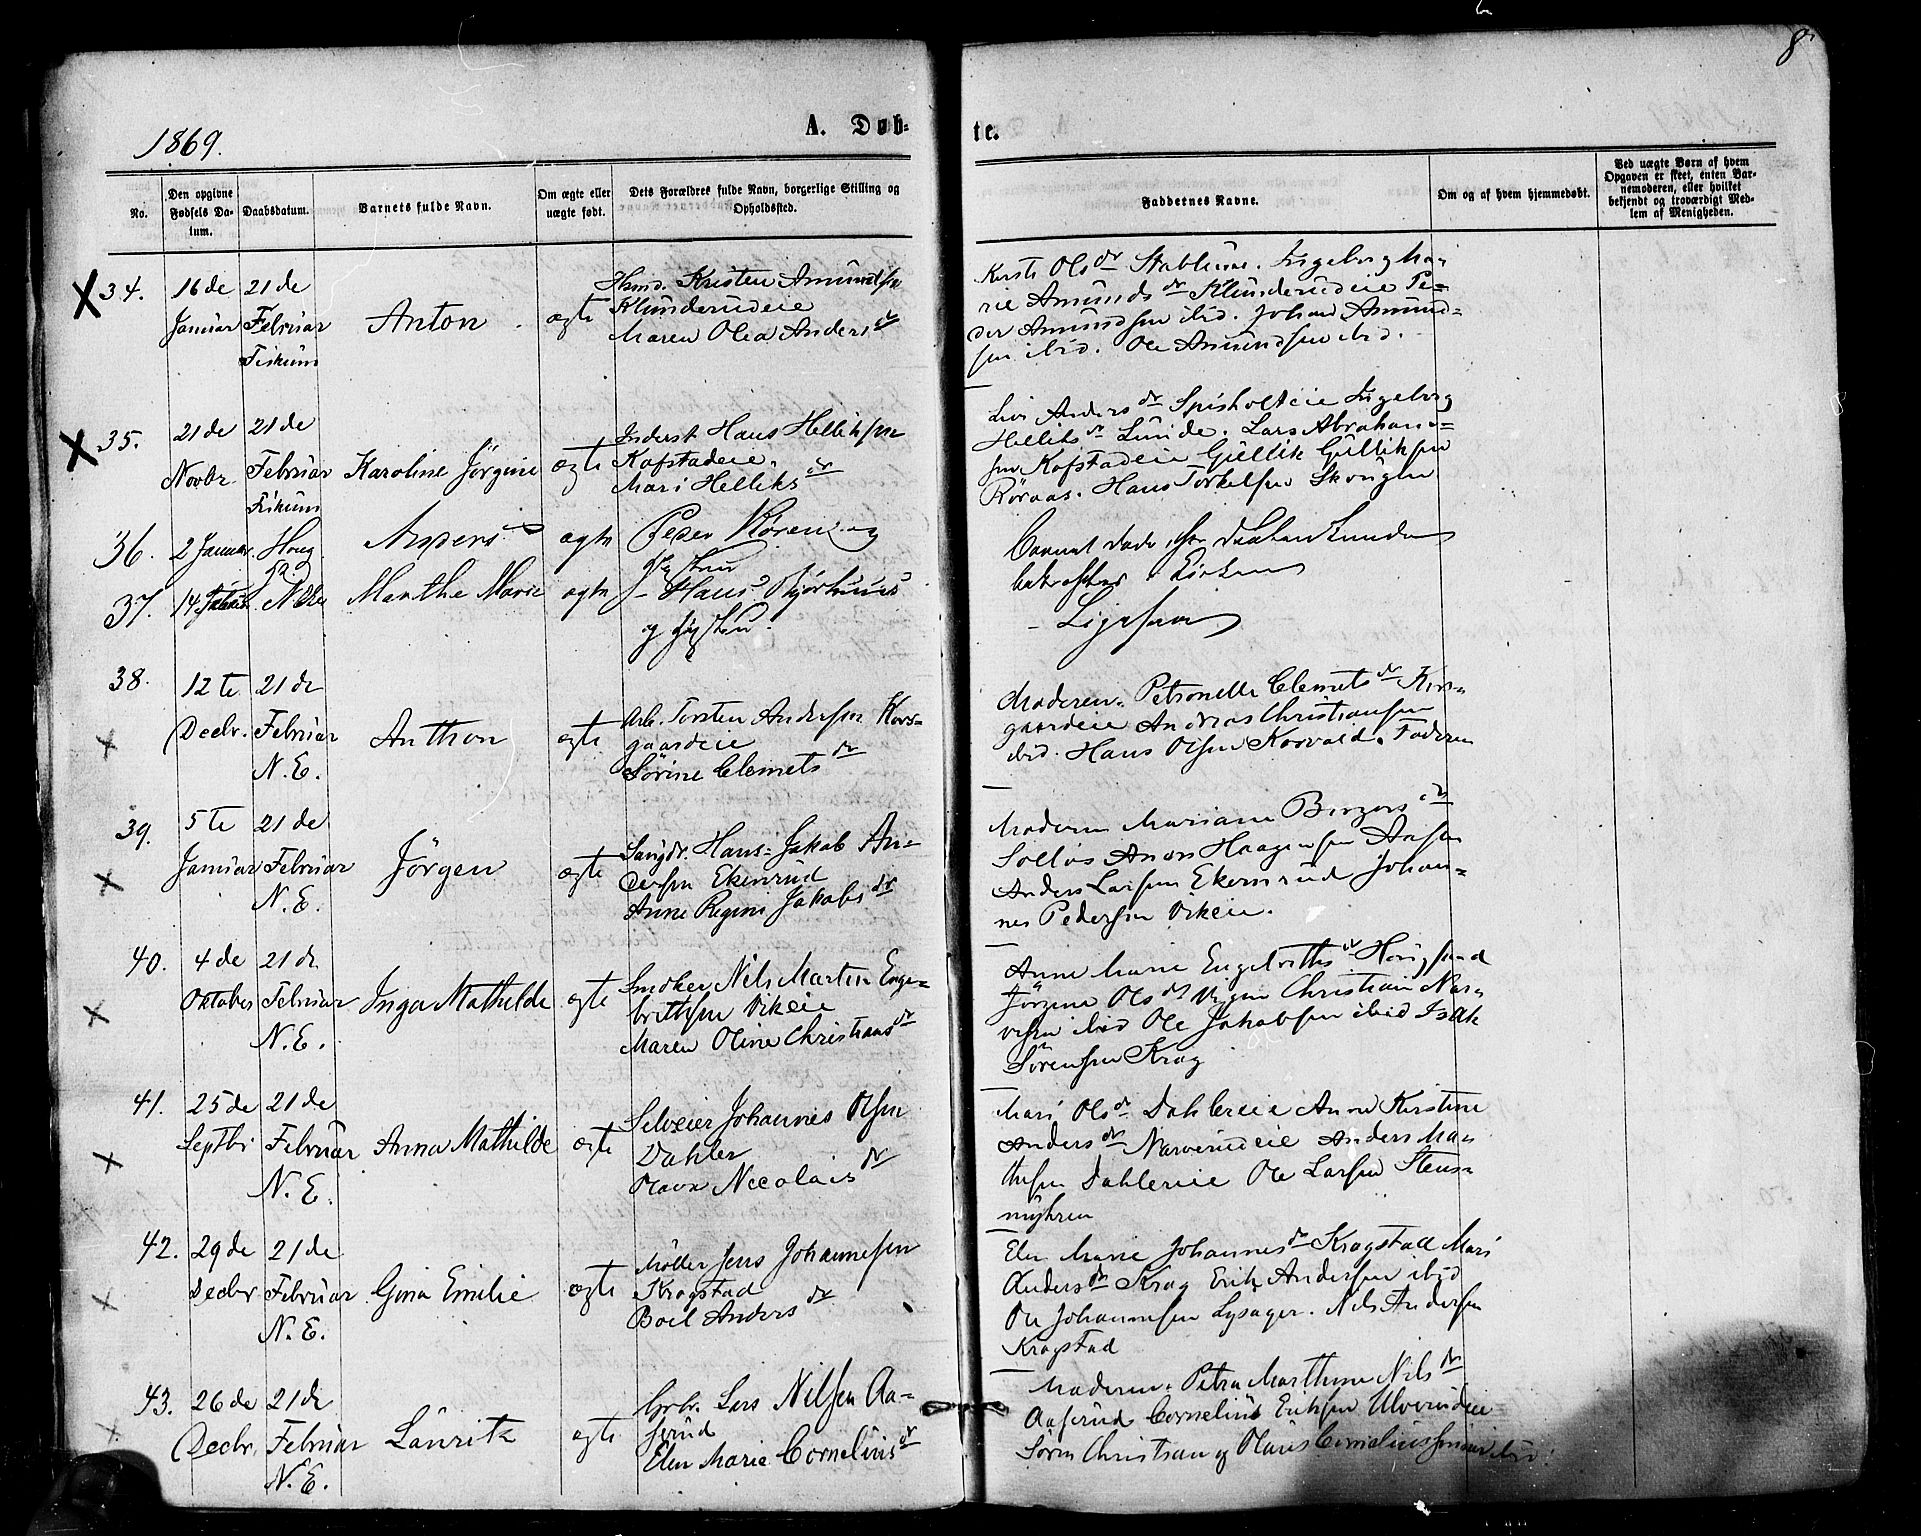 8
1869.
A. Døb-
te.
No.
Den opgivne Fødsels Da-
tum.
Daabsdatum.
Barnets fulde Navn.
Om ægte eller
uægte født.
Dets Forældres fulde Navn, borgerlige Stilling og
Opholdssted.
Faddernes Navne.
Om og af hvem hjemmedøbt.
Ved uægte Børn af hvem
Opgaven er skeet, enten Bar-
nemoderen, eller hvilket
bekjendt og troværdigt Med-
lem af Menigheden.
34.
16de
Januar
21de
Februar
Fiskum
Anton
ægte
Kristen Amundsen
Klunderudeie
Maren Olea Andersdr
Olsdr Ingeborg Ma-
rie Amundsdr Klunderudeie Pe-
der Amundsen ibid. Johan Amund-
sen ibid. Ole Amundsen ibid.
35.
21de
Novbr
21de
Februar
Fiskum
Karoline Jörgine
ægte
Inderst Hans Helliksen
Kofstadeie.
Mari Helliksdr
Andersdr Spisholteie Ingeborg
Helliksdr Lunde. Lars Abraham-
sen Kofstadeie Gullik Gulliksen
Röraas. Hans Torkelsen Skougen
36.
2 Januar.
Houg
ægte
Peder og
Hustru
Barnet døde
37.
14
Marthe Marie
ægte
Hans
og Hustru.
Ligesaa
38.
12te
Decbr.
21de
Februar
N.E.
Anthon
ægte
Arb. Torsten Andersen Kors-
gaardeie
Sörine Clemetsdr
Moderen. Petronelle Clemetsdr Kors-
gaardeie Andreas Christiansen
ibid. Hans Olsen Korsvold. Faderen
39.
5te
Januar
21de
Februar
N.E.
Jörgen
ægte
Hans Jakob An-
dersen Ekerrud
Anne Regine Jakobsdr
Moderen Mariane
Haagensen
Anders Larsen Ekerrud Johan-
nes Pedersen Vikeie.
40.
4de
Oktober
21de
Februar
N.E.
Inga Mathilde
ægte
Smoker Nils Martin Enge-
brethsen Vikeie
Maren Oline Christiansdr
Anne Marie Engebrethsdr Hougsund
Jörgine Olsdr Christian Nar-
vesen ibid Ole Jakobsen ibid Isak
Sörensen Krog
41.
25de
Septbr
21de
Februar
N.E.
Anna Mathilde
ægte
Selveier Johannes Olsen
Dahler
Olava Nicolaisdr
Mari Olsdr Dahlereie Anne Kirstine
Andersdr Narverudeie Anders Ma-
thisen Dahlereie Ole Larsen Stens-
myhren
42.
29de
Decbr
21de
Februar
N.E.
Gina Emilie
ægte
Möller Jens Johannesen
Krogstad
Boel Andersdr
Elen Marie Johannesdr Krogstad Mari
Andersdr Krog Erik Andersen ibid
Ole Johannesen Lysager. Nils Andersen
Krogstad
43.
26de
Decbr.
21de
Februar
N.E.
Lauritz
ægte
Grbr. Lars Nilsen Aa-
serud
Elen Marie Corneliusdr
Moderen. Petra Marthine Nilsdr
Aaserud Cornelius Eriksen Ulverudeie
Sören Christian og Olaus Corneliussenner ibid.